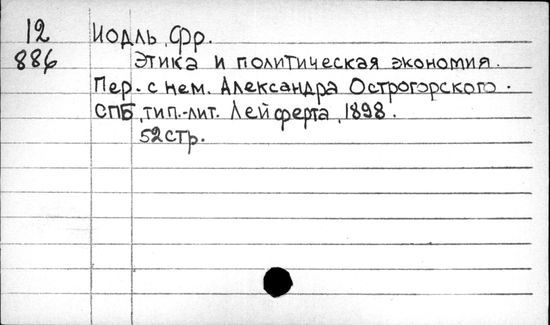 12 Иодль, Фр.
886 Этика и политическая экономия.
Пер. с нем. Александра Острогорского.
СПБ, тип.-лит. Лейферта, 1898.
52 стр.